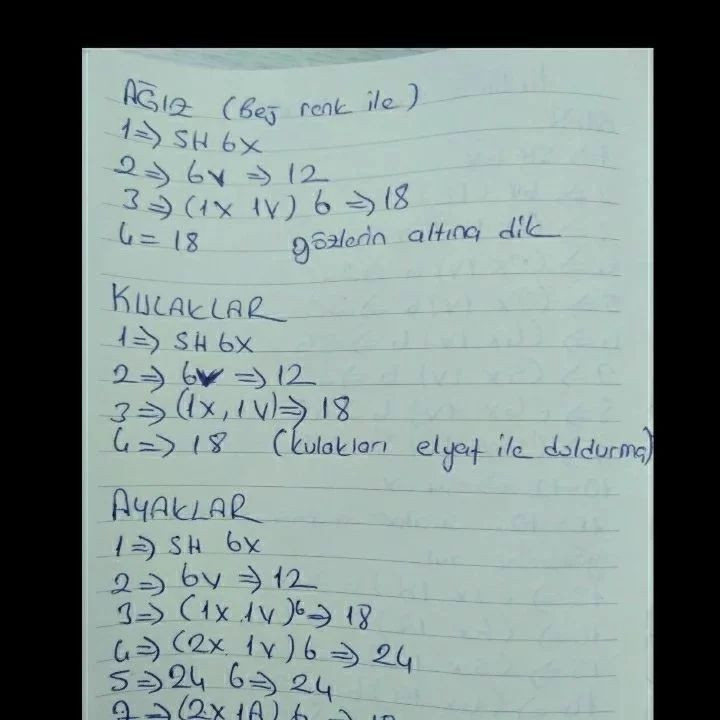 AĞIZ (Bej renk ile)
1⇒ SH 6X
2⇒ 6V ⇒ 12
3⇒ (1X 1V) 6 ⇒ 18
4= 18 gözlerin altına dik
KULAKLAR
1⇒ SH 6X
2⇒ 6V ⇒ 12
3⇒ (1X, 1V)⇒ 18
4⇒ 18 (kulakları elyaf ile doldurma)
AYAKLAR
1⇒ SH 6X
2⇒ 6V ⇒ 12
3⇒ (1X 1V)6⇒ 18
4⇒ (2X 1V) 6 ⇒ 24
5⇒ 24 6⇒ 24
7⇒ (2X 1A) 6 ⇒ 18